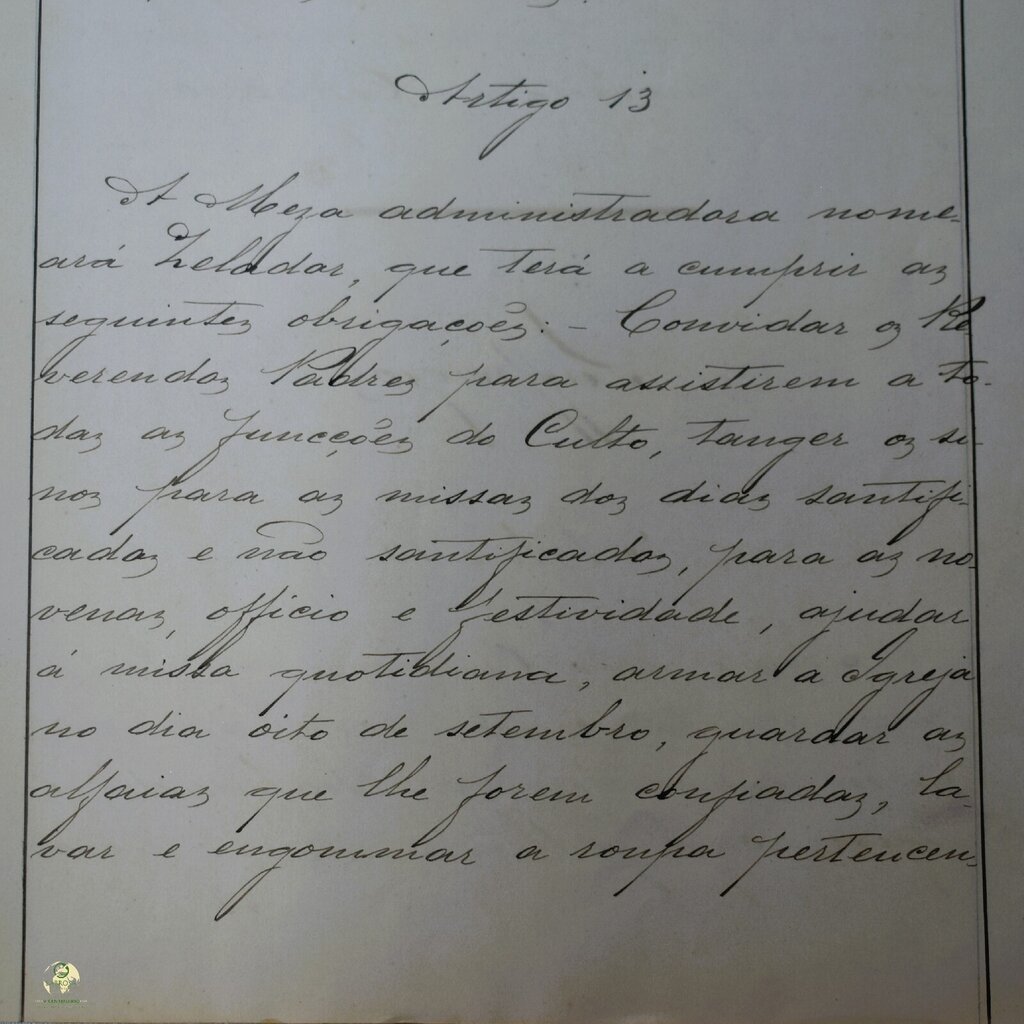 Artigo 13
A Meza administradora nome-
ará Zelador, que terá a cumprir as
seguintes obrigações: - Convidar os Re-
verendos Padres para assistirem a to-
das as funcções do Culto, tanger os si-
nos para as missas dos dias santifi-
cados e não santificados, para as no-
venas, officio e festividade, ajudar
á missa quotidiana, armar a Igreja
no dia oito de setembro, guardar as
alfaias que lhe forem confiadas, la-
var e engommar a roupa pertencen-